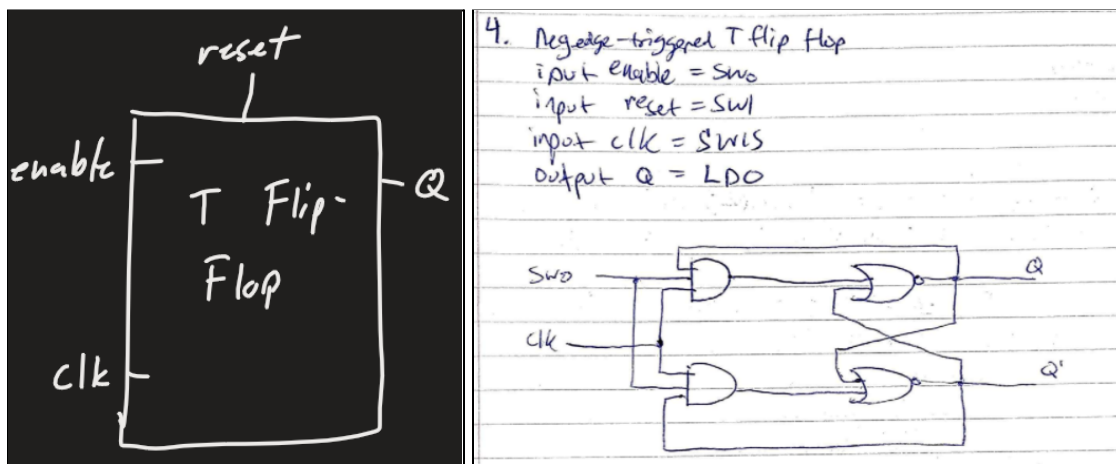 reset
enable
T Flip-
Flop
Q
clk
4. Neg edge-triggered T flip flop
iput enable = SW0
input reset = SW1
input clk = SW15
output Q = LD0
SW0
Q
clk
Q'